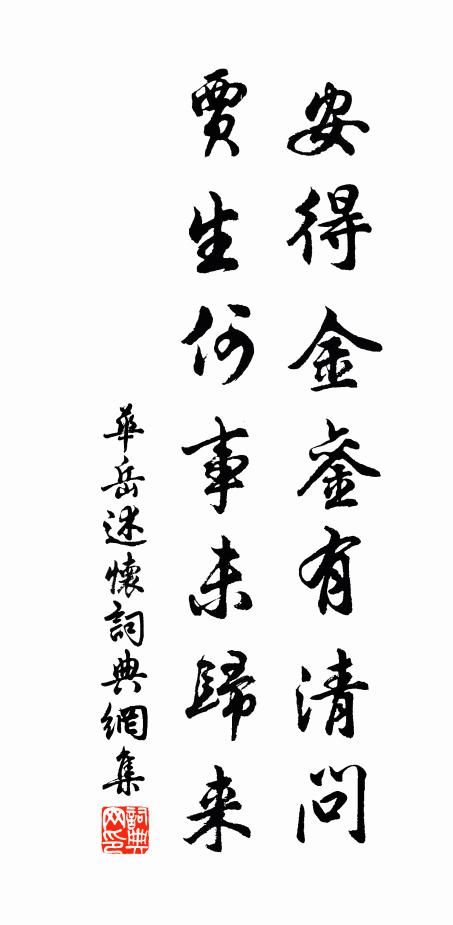 安得金銮有清問
賈生何事未歸来
華岳述懷詞典網集
詞典网印